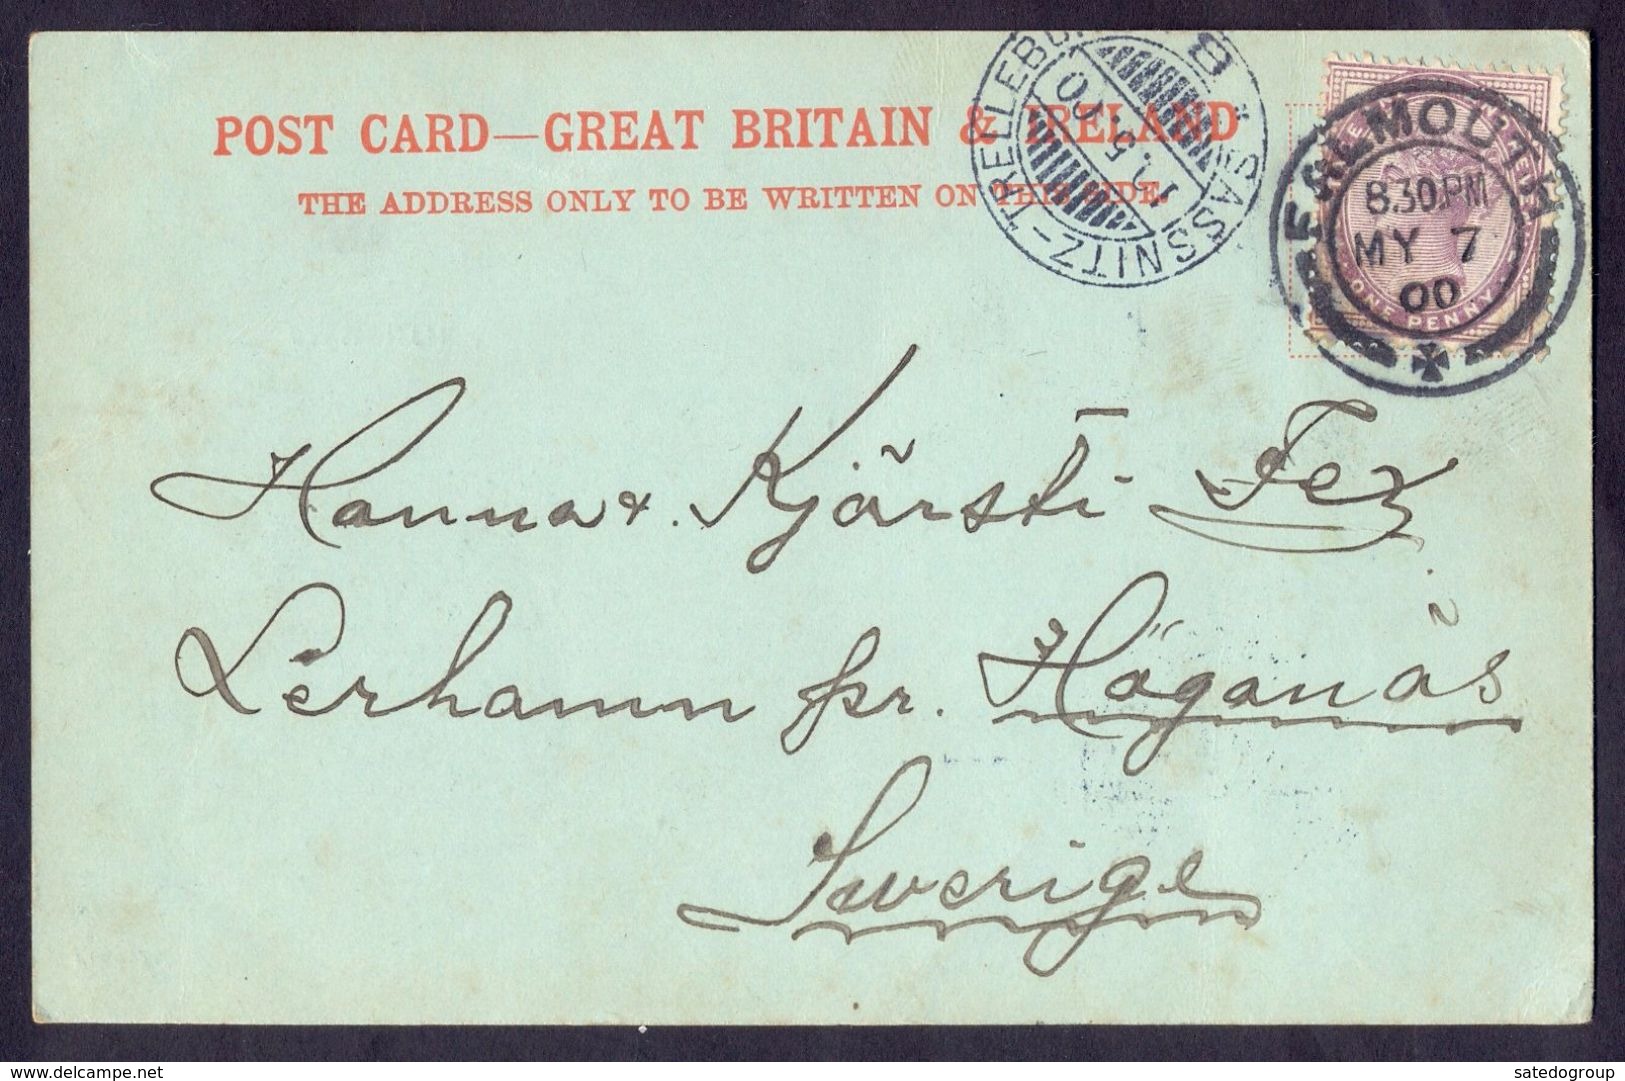 POST CARD—GREAT BRITAIN & IRELAND
THE ADDRESS ONLY TO BE WRITTEN ON THIS SIDE.
SASSNITZ-TRELLEBORG
11.5.00
FALMOUTH
8.30.PM
MY 7
00
ONE PENNY
Hanna & Kjärsti Fex
Lerhamn pr. Höganäs
Sverige
delcampe.net
satedogroup